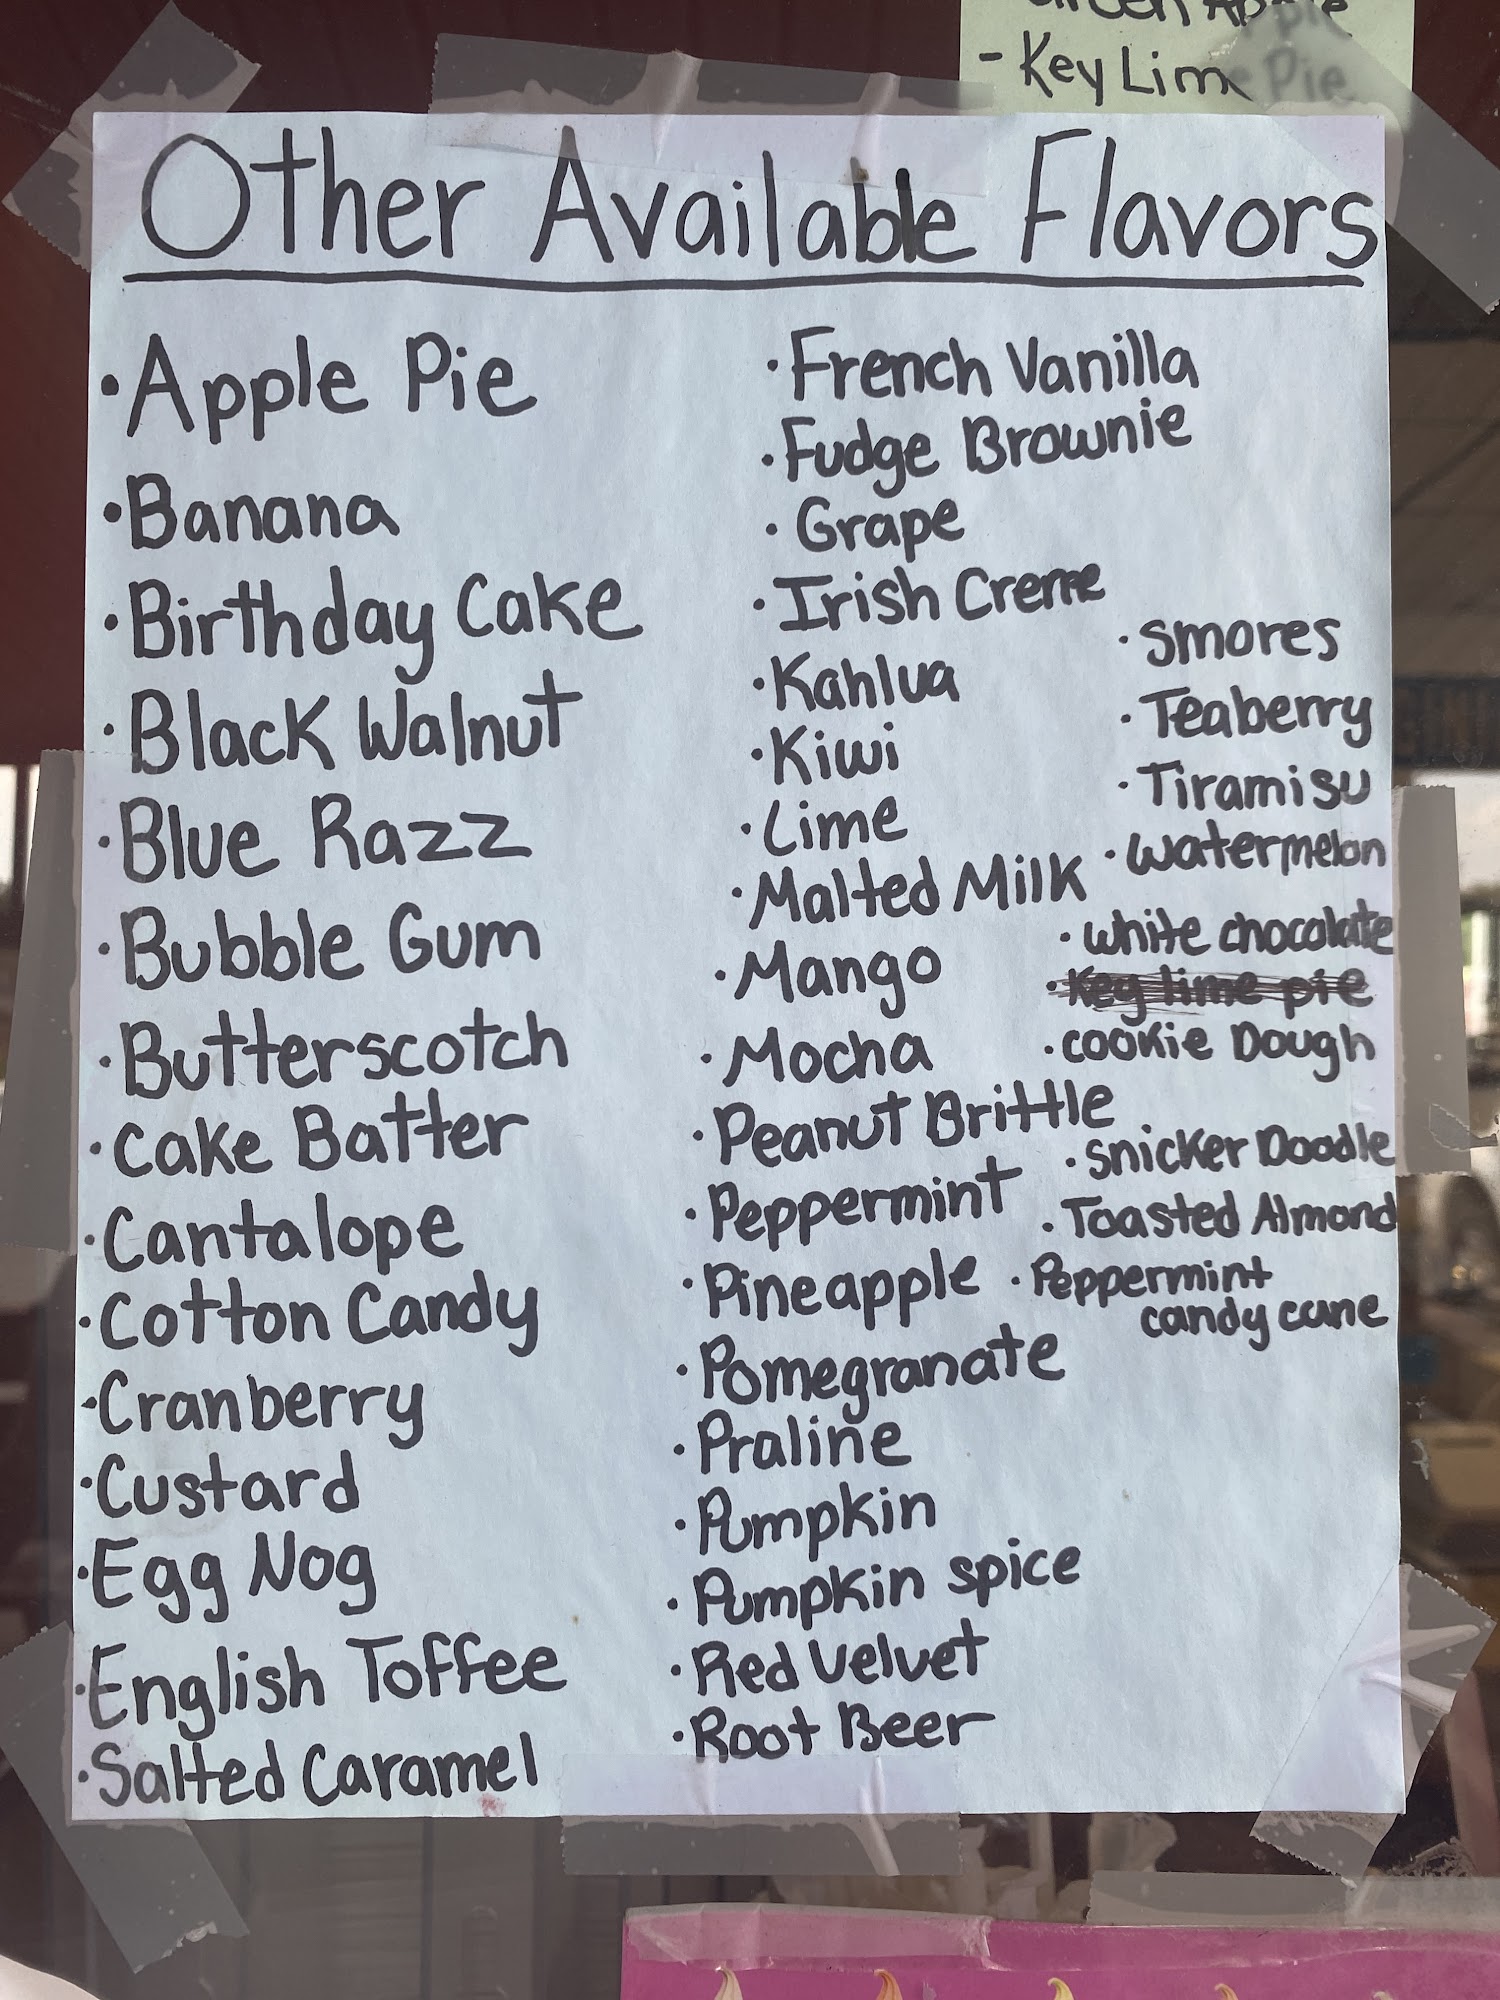 - Key Lime Pie
Other Available Flavors
• Apple Pie
• Banana
• Birthday Cake
• Black Walnut
• Blue Razz
• Bubble Gum
• Butterscotch
• Cake Batter
• Cantalope
• Cotton Candy
• Cranberry
• Custard
• Egg Nog
• English Toffee
• Salted Caramel
• French Vanilla
• Fudge Brownie
• Grape
• Irish Creme
• Kahlua
• Kiwi
• Lime
• Malted Milk
• Mango
• Mocha
• Peanut Brittle
• Peppermint
• Pineapple
• Pomegranate
• Praline
• Pumpkin
• Pumpkin spice
• Red Velvet
• Root Beer
• Smores
• Teaberry
• Tiramisu
• Watermelon
• white chocolate
• Key lime pie
• cookie Dough
• Snicker Doodle
• Toasted Almond
• Peppermint
candy cane